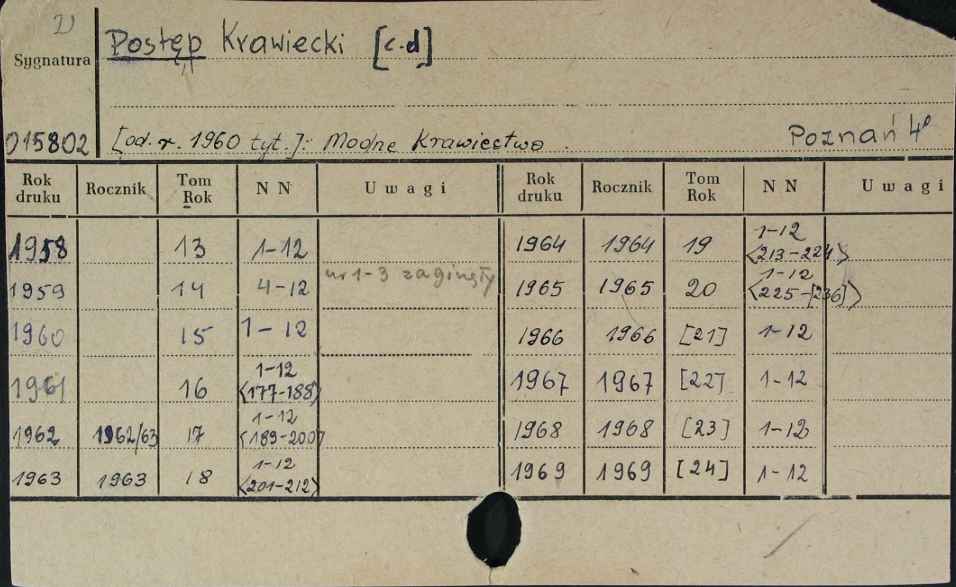 Sygnatura
Postęp Krawiecki [c.d]
015802 [od. r. 1960 tyt.]: Modne Krawiectwo. Poznań 4°
Rok druku Rocznik Tom Rok NN Uwagi Rok druku Rocznik Tom Rok NN Uwagi
1958 13 1-12 1964 1964 19 1-12 <213-224>
1959 14 4-12 nr 1-3 zaginęły 1965 1965 20 1-12 <225-[236]>
1960 15 1-12 1966 1966 [21] 1-12
1961 16 1-12 <177-188> 1967 1967 [22] 1-12
1962 1962/63 17 1-12 <189-200> 1968 1968 [23] 1-12
1963 1963 18 1-12 <201-212> 1969 1969 [24] 1-12